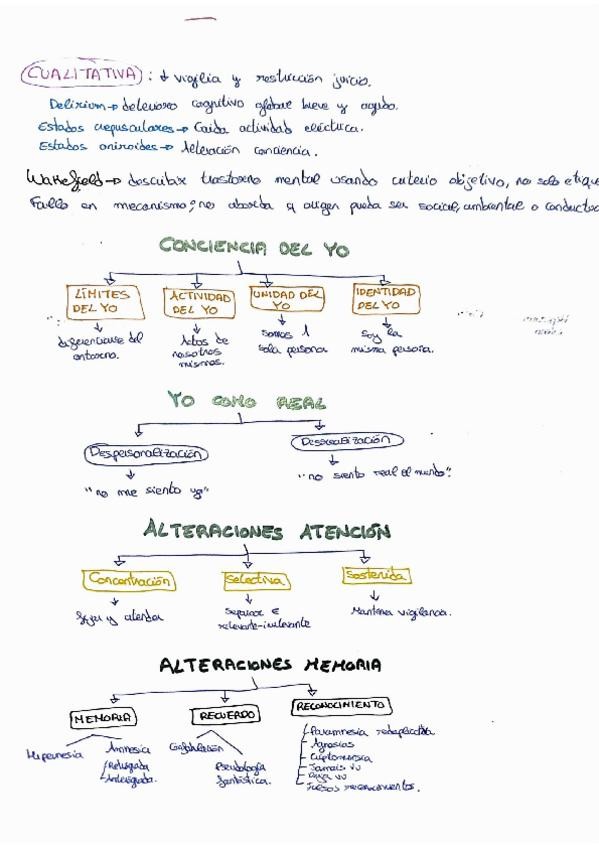 CUALITATIVA: ↓ vigilia y restricción juicio.
Delirium → deterioro cognitivo global breve y agudo.
Estados crepusculares → Caida actividad eléctrica.
Estados oniroides → Alteración conciencia.
Wakefield → describir trastorno mental usando criterio objetivo, no solo etique
Fallo en mecanismo; no aborda q origen pueda ser social, ambiental o conductua
CONCIENCIA DEL YO
LÍMITES DEL YO
ACTIVIDAD DEL YO
UNIDAD DEL YO
IDENTIDAD DEL YO
diferenciarse del entorno.
Actos de nosotros mismos.
somos 1 sola persona
soy la misma persona.
YO COMO REAL
Despersonalización
Desrealización
"no me siento yo"
"no siento real el mundo".
ALTERACIONES ATENCIÓN
Concentración
Selectiva
Sostenida
Fijar y atender
Separar E relevante-irrelevante
Mantener vigilancia.
ALTERACIONES MEMORIA
MEMORIA
RECUERDO
RECONOCIMIENTO
Hipermnesia
Amnesia
Retrógrada
Anterógrada
Confabulación
Pseudología fantástica.
Paramnesia reduplicativa
Agnosias
Criptomnesia
Jamais vu
Deja vu
Falsos reconocimientos.